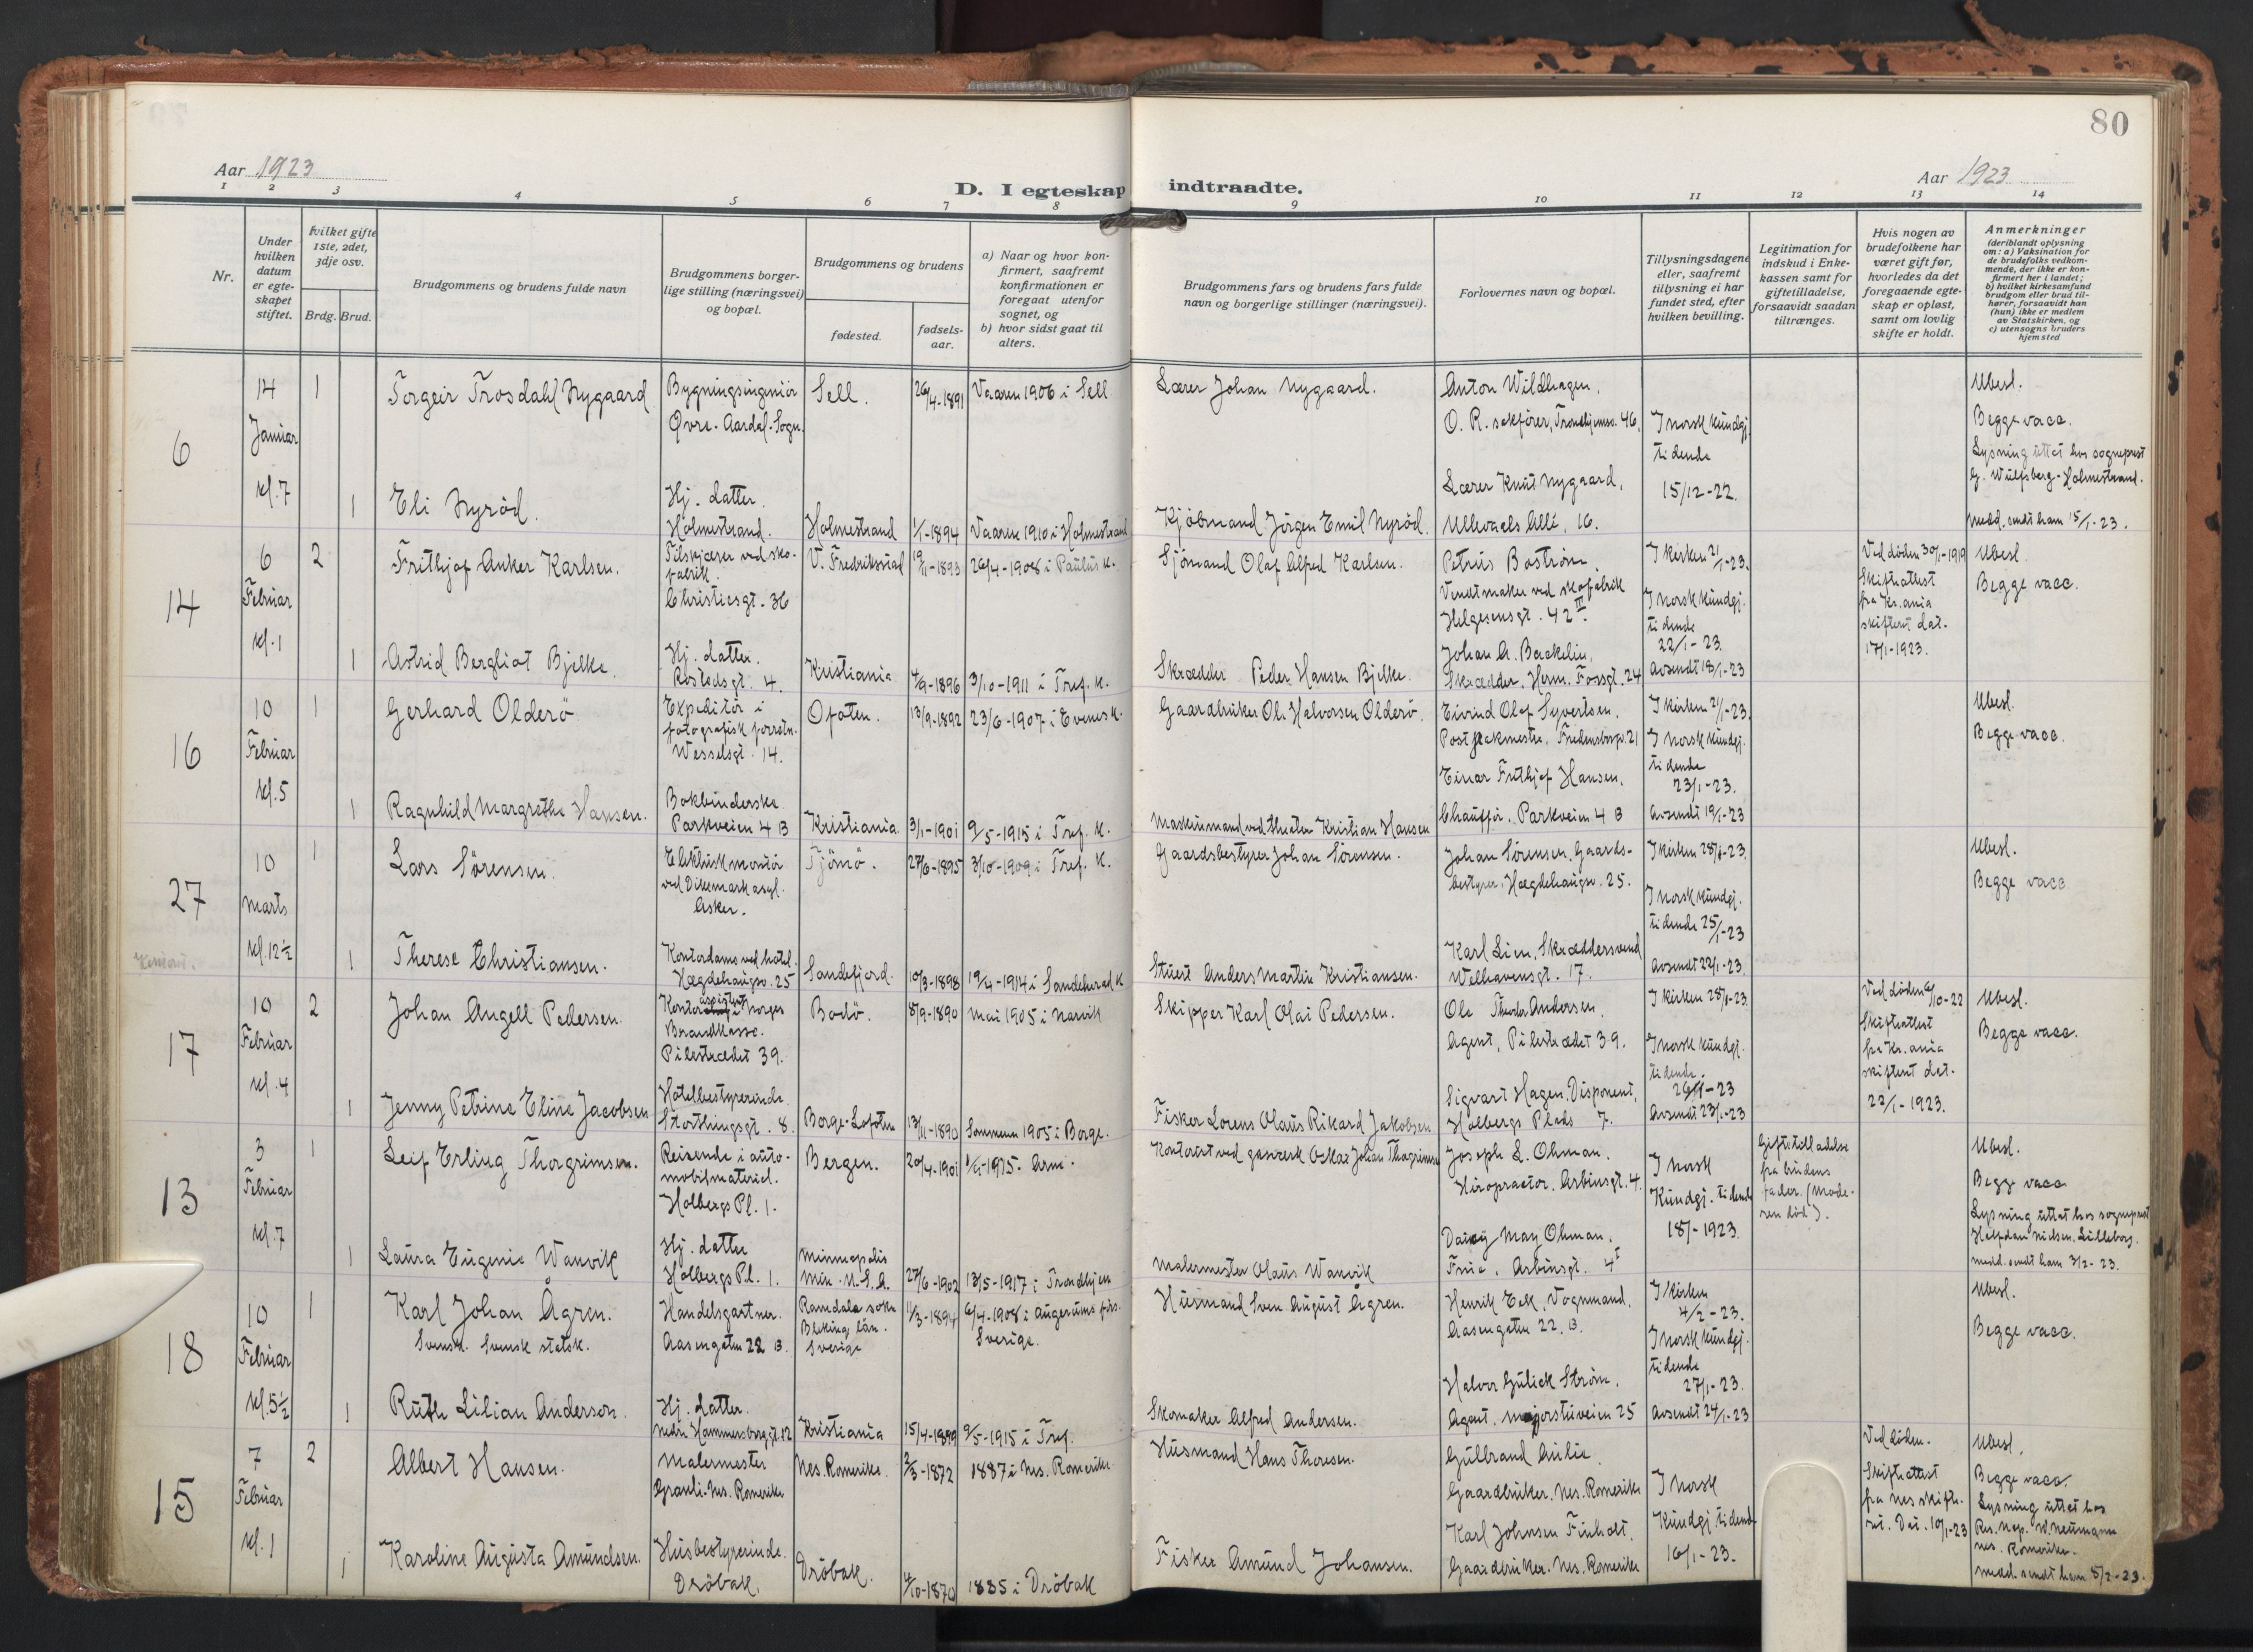 80
Aar 1923
D. I egteskap indtraadte.
Aar 1923
1 2 3 4 5 6 7 8 9 10 11 12 13 14
Nr.
Under hvilken datum er egteskapet stiftet.
Hvilket gifte 1ste, 2det, 3dje osv.
Brdg. Brud.
Brudgommens og brudens fulde navn
Brudgommens borgerlige stilling (næringsvei) og bopæl.
Brudgommens og brudens
fødested.
fødsels-aar.
a) Naar og hvor konfirmert, saafremt konfirmationen er foregaat utenfor sognet, og
b) hvor sidst gaat til alters.
Brudgommens fars og brudens fars fulde navn og borgerlige stillinger (næringsvei).
Forlovernes navn og bopæl.
Tillysningsdagene eller, saafremt tillysning ei har fundet sted, efter hvilken bevilling.
Legitimation for indskud i Enkekassen samt for giftetilladelse, forsaavidt saadan tiltrænges.
Hvis nogen av brudefolkene har været gift før, hvorledes da det foregaaende egteskap er opløst, samt om lovlig skifte er holdt.
Anmerkninger (deriblandt oplysning om: a) Vaksination for de brudefolks vedkommende, der ikke er konfirmert her i landet; b) hvilket kirkesamfund brudgom eller brud tilhører, forsaavidt han (hun) ikke er medlem av Statskirken, og c) utensogns bruders hjemsted
6
14 Januar kl. 7
1
Torgeir Trosdahl Nygaard
Bygningsingeniør
Øvre-Aardal-Sogn.
Sell.
26/4-1891
Vaaren 1906 i Sell
Lærer Johan Nygaard.
Anton Wildhagen,
O. R. sakfører, Trondhjemsv. 46.
Lærer Knut Nygaard,
Ullevaals Allé, 16.
I norsk kundgj. tidende
15/12-22.
Ubesl.
Begge vacc.
Lysning uttat hos sogneprest
G. Wulfsberg-Holmestrand.
medd. sendt ham 15/1-23.
1
Eli Nyrød.
Hj. datter.
Holmestrand.
Holmestrand
1/1-1894
Vaaren 1910 i Holmestrand
Kjøbmand Jørgen Emil Nyrød.
14
6 Februar kl. 1
2
Frithjof Anker Karlsen.
Tilskjærer ved skofabrik.
Christiesgt. 36
V. Fredrikstad
19/11-1893
26/4-1908 i Paulus k.
Sjømand Olaf Alfred Karlsen.
Petrus Bostrøm,
Vendtmaker ved skofabrik
Helgesensgt. 42 III
Johan A. Backelin,
Skrædder, Herm. Fossgt. 24
I kirken 21/1-23.
I norsk kundgj. tidende
22/1-23.
Avsendt 18/1-23
Ved døden 30/1-1919
Skifteattest fra Kr.ania skifteret dat.
17/1-1923.
Ubesl.
Begge vacc.
1
Astrid Bergliot Bjelke.
Hj. datter.
Rostedsgt. 4.
Kristiania
4/9-1896
3/10-1911 i Tref. k.
Skrædder Peder Hansen Bjelke.
16
10 Februar kl. 5
1
Gerhard Olderø
Expeditør i fotografisk forretn.
Wesselsgt. 14.
Ofoten.
13/9-1892
23/6-1907 i Evenes k.
Gaardbruker Ole Halvorsen Olderø.
Eivind Olaf Syvertsen.
Postpakmester, Fredensborgv. 21
Einar Frithjof Hansen,
Chauffør, Parkveien 4 B
I kirken 21/1-23.
I norsk kundgj. tidende
23/1-23.
Avsendt 19/1-23
Ubesl.
Begge vacc.
1
Ragnhild Margrethe Hansen.
Bokbinderske
Parkveien 4 B
Kristiania.
3/1-1901
9/5-1915 i Tref. k.
Maskinmand ved theater Kristian Hansen
27
10 Marts kl. 12½
1
Lars Sørensen.
Elektrisk montør
ved Dikemark asyl.
Asker.
Tjømø.
27/6-1895
3/10-1909 i Tref. k.
Gaardsbestyrer Johan Sørensen.
Johan Sørensen, Gaardsbestyrer, Hægdehaugsv. 25.
Karl Lien, Skræddersvend
Welhavensgt. 17.
I kirken 28/1-23.
I norsk kundgj. tidende 25/1-23
Avsendt 22/1-23.
Ubesl.
Begge vacc
1
Therese Christiansen.
Kontordame ved hotel.
Hægdehaugsv. 25
Sandefjord.
10/3-1898
19/4-1914 i Sandeherad k
Stuert Anders Martin Kristiansen.
17
10 Februar kl. 4
2
Johan Angell Pedersen.
Kontorassistent i Norges
Brandkasse.
Pilestrædet 39.
Bodø.
8/9-1890
Mai 1905 i Narvik
Skipper Karl Olai Pedersen.
Ole Theodor Andersen.
Agent, Pilestrædet 39.
Sigvart Hagen, Disponent,
Holbergs Plads 7.
I kirken 28/1-23.
I norsk kundgj. tidende.
26/1-23
Avsendt 23/1-23
Ved døden 6/10-22
Skifteattest fra Kr.ania skifteret dat.
22/1-1923.
Ubesl.
Begge vacc.
1
Jenny Petrine Eline Jacobsen
Hotelbestyrerinde.
Storthingsgt. 8.
Borge-Lofoten
13/11-1890
Sommeren 1905 i Borge.
Fisker Lorens Olaus Rikard Jakobsen
13
3 Februar kl. 7
1
Leif Erling Thorgrimsen.
Reisende i automobilmateriel.
Holbergs Pl. 1.
Bergen.
20/4-1901
Kontorist ved gasverk Oskar Johan Thogrimsen
Joseph L. Ohman.
Kiropractor, Arbinsgt. 4.
Daisy May Ohman.
Frue, Arbinsgt. 4 I
I norsk Kundgj. tidende
18/1-1923.
Giftetilladelse fra brudens fader. (Moderen død).
Ubesl.
Begge vacc
Lysning uttat hos sogneprest
Halfdan Nielsen, Lilleborg.
medd. sendt ham 3/2-23.
1
Laura Eugenie Wanvik
Hj. datter
Holbergs Pl. 1.
Minneapolis
Min. U.S.A.
27/6-1902
13/5-1917 i Trondhjem
Malermester Olaus Wanvik
18
10 Februar kl. 5½
1
Karl Johan Ågren.
Svensk. Svensk statsk.
Handelsgartner.
Aasengaten 22 B.
Ramdala sokn
Bleking län.
Sverige
1/3-1894
6/4-1908 i Augerums förs.
Sverige.
Husmand Sven August Ågren.
Henrik Eek, Vognmand,
Aasengaten 22, B.
Halvor Gulick Strøm.
Agent, Majorstuveien 25
I kirken
4/2-23.
I norsk kundgj. tidende
27/1-23.
Avsendt 24/1-23
Ubesl.
Begge vacc.
1
Ruth Lilian Anderson.
Hj. datter.
Nedre Hammersborggt. 12
Kristiania
15/4-1899
9/5-1915 i Tref.
Skomaker Alfred Andersen.
15
7 Februar kl. 1
2
Albert Hansen.
Malermester
Grauli-Nes. Romerike
Nes. Romerike.
2/3-1872
1887 i Nes. Romerike.
Husmand Hans Thoresen.
Gulbrand Aulie.
Gaardbruker. Nes. Romerike
Karl Johnsen Finholt.
Gaardbruker. Nes. Romerike
I norsk Kundgj. tidend
16/1-23.
Ved døden.
Skifteattest fra Nes skifteret. Dat. 10/1-23
Ubesl.
Begge vacc.
Lysning uttat hos
Res. kap. W. Neumann
Nes. Romerike.
medd. sendt ham 8/2-23.
1
Karoline Augusta Amundsen.
Husbestyrerinde.
Drøbak.
Drøbak.
4/10-1870
1885 i Drøbak
Fisker Amund Johansen.